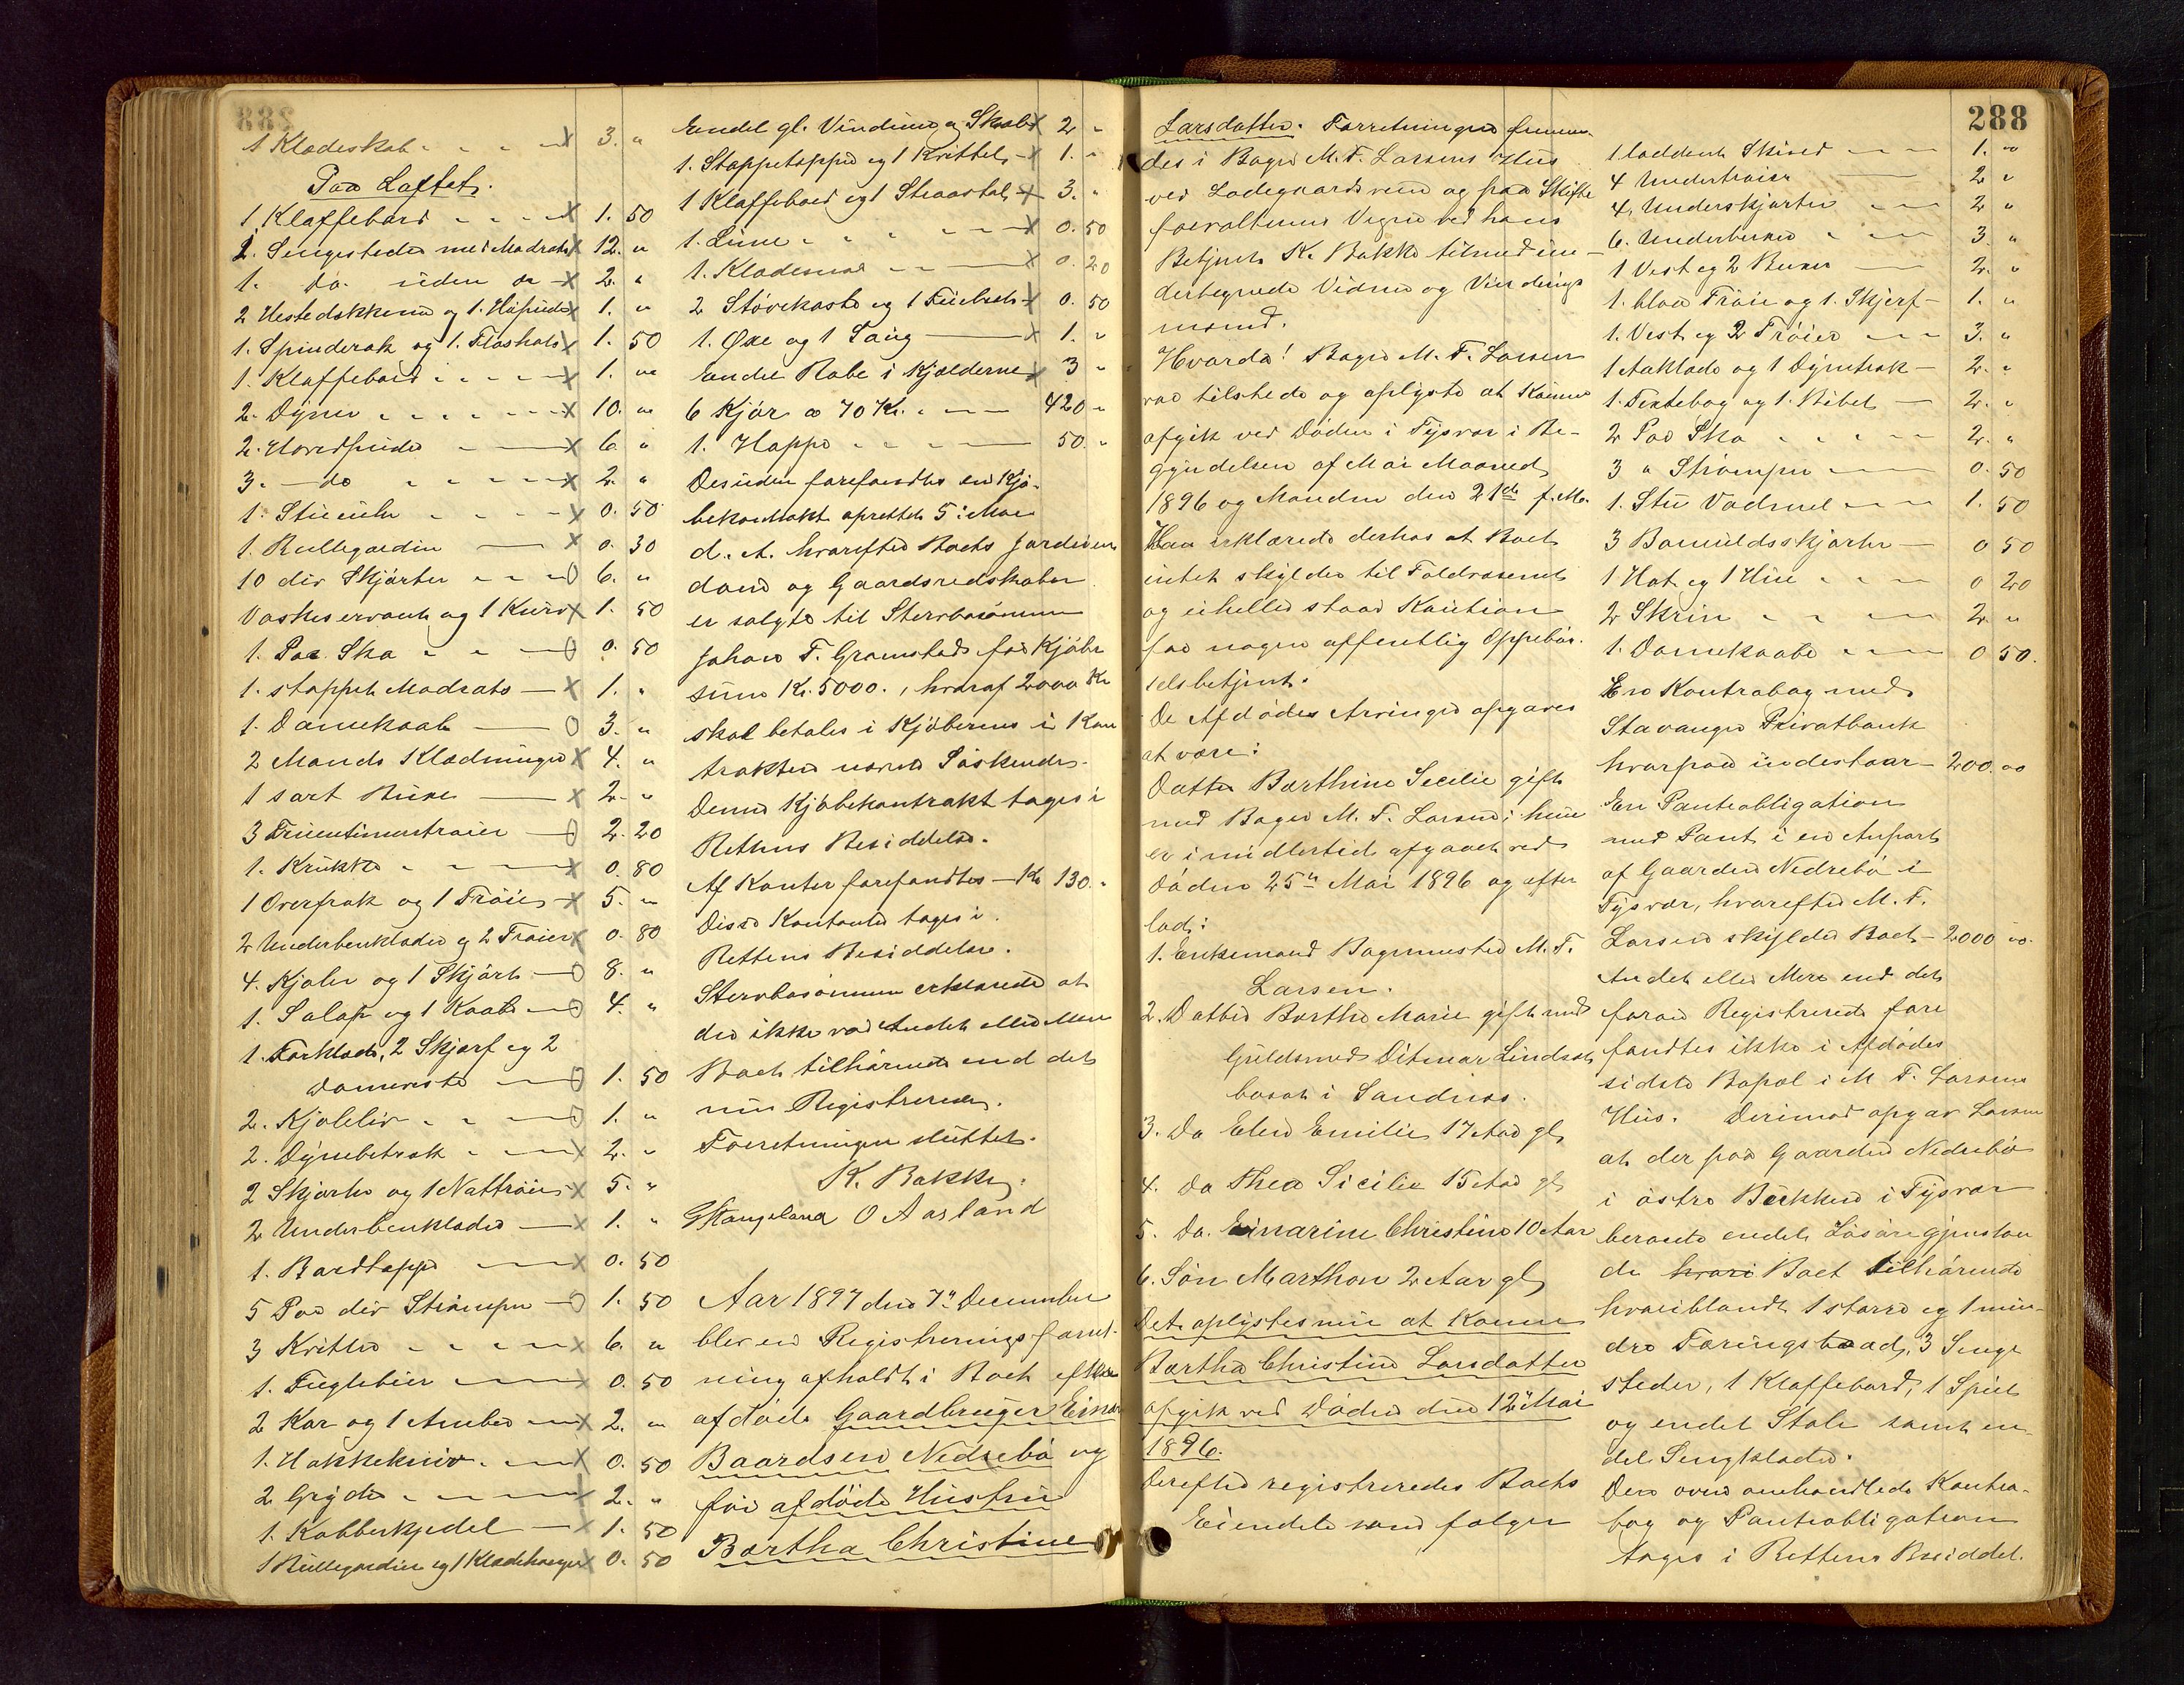 288
1 Klædeskab - - - x 3. "
Paa Loftet.
1 Klaffebord - - - x 1. 50
2. Sengesteder med Madrats x 12. "
1. do. uden do x 2. "
2 Hestedækkener og 1. Høpude x 1. "
1. Spinderok og 1. x 1. 50
1. Klaffebord - - - x 1. "
2. Dyner - - - x 10. "
2. Hovedpuder - x 6. "
3. - do - - - x 2. "
1. Stueuhr - - - x 0. 50
1. Rullegardin - x 0. 30
10 div Skjørter - - - 0 6. "
Vaskeservant og 1 Kurv x 1. 50
1. Par Sko - - - 0 0. 50
1. stoppet Madrats - x 1. "
1. Damekaabe - 0 3. "
2 Mands Klædninger x 4. "
1 sort Buxe - x 2. "
3 Fruentimmertrøier - 0 2. 20
1. Krukke - - - x 0. 80
1 Overfrak og 1 Trøie - x 5. "
2 Underbenklæder og 2 Trøier x 0. 80
4. Kjoler og 1 Skjørt - 0 8. "
1. Salop og 1 Kaabe - 0 4. "
1. Forklæde, 2 Skjærf og 2
Dameveste - 0 1. 50
2. Kjoleliv - - - 0 1. "
2. Dynebetræk - - x 2. "
2 Skjorter og 1 Nattrøie x 5. "
2 Underbenklæder - x 1. "
1. Bordtæppe - x 0. 50
5 Par div Strømper - 0 1. 50
3 Kvitler - - - x 6. "
1. Fuglebur - x 0. 50
2 Kar og 1 Ambar - x 2. "
1. Hakkekniv - - x 0. 50
2 Gryder - - - x 2. "
1. Kobberkjedel - x 1. 50
1 Rullegardin og 1 Klædehænger x 0. 50
Endel gl. Vinduer og Skab x 2 "
1. Stoppetæppe og 1 Kvittel - x 1. "
1 Klaffebord og 1 Straastol - x 3. "
1. Lime - - - x 0. 50
1. Klædesnor - - x 0. 20
2 Støvekoste og 1 - x 0. 50
1. Øxe og 1 Saug - x 1. "
Endel Rabe i Kjælderne x 3 "
6 Kjør a 70 Kr. - - 420 "
1. Hoppe - - - 50. "
Desuden forefandtes en Kjø-
bekontrakt oprettet 5: Mai
d. A. hvorefter Boets Jordeien
dom og Gaardsredskaber
er solgte til Stervbosønnen
Johan T. Gramstad for Kjøbe
sum Kr. 5000. , hvoraf 2000 Kr
skal betales i Kjøberens i Kon
trakten nævnte Søskende.
Denne Kjøbekontrakt tages i
Rettens Besiddelse.
Af Konter forefandtes - Kr 130. "
Disse Kontanter tages i
Rettens Besiddelse.
Stervbosønnen erklærede at
der ikke var Andet eller Mere
Boet tilhørende end det
nu Registrerede.
Forretningen sluttet.
K. Bakke,
O Aasland
Aar 1897 den 7" December
blev en Registreringsforret-
ning afholdt i Boet efter
afdøde Gaardbruger Einar
Baardsen Nedrebø og
før afdøde Hustru
Bertha Christine
Larsdatter. Forretningen fremm-
des i Bager M. T. Larsens Hus
ved Ladegaardsveien og paa Skifte
forvalterens Vegne ved hans
Betjent K. Bakke tilmed un-
dertegnede Vidner og Vurderings
mænd.
Hvorda! Bager M. T. Larsen
var tilstede og oplyste at Konen
afgik ved Døden i Tysvær i Be-
gyndelsen af Mai Maaned
1896 og Manden den 21de f. M.
Han erklærede derhos at Boet
intet skylder til Toldvæsenet
og eiheller staar Kaution
for nogen offentlig Oppebør-
selsbetjent.
De Afdødes Arvinger opgaves
at være:
Datter Berthine Secilie gift
med Bager M. T. Larsen; hun
er imidlertid afgaaet ved
Døden 25de Mai 1896 og efter
lod:
1. Enkemand Bagermester M. T.
Larsen.
2. Datter Berthe Marie gift med
Guldsmed Ditmar Lindseth
bosat i Sandnes.
3. Do Elen Emilie 17 Aar gl,
4. Do Thea Sicilie 15 Aar gl,
5. Do. Einarine Christine 10 Aar
6. Søn Marthon 2 Aar gl,
Det oplystes nu at Konen
Bertha Christine Larsdatter
afgik ved Døden den 12" Mai
1896.
Derefter registreredes Boets
Eiendele som følger
288
1 lodden Skind - - 1. "
4 Undertrøier - 2 "
4. Underskjorter - - 2 "
6. Underbuxer - - 3. "
1 Vest og 2 Buxer - 2. "
1. blaa Trøie og 1. Skjerf - 1. "
1. Vest og 2 Trøier - - 3. "
1 Aaklæde og 1 Dynetræk - 2. "
1. Textebog og 1. Bibel - 2. "
2 Par Sko - - - 2. "
3 " Strømper - 0. 50
1. Stu Vadmel - - 1. 50
3 Bomuldsskjorter - 0 50
1 Hat og 1 Hue - - 0 20
2 Skrin - - - 2. "
1. Damekaabe - - 0 50.
En Kontrabog med
Stavanger Privatbank
hvorpaa indestaar - 200. "
En Panteobligation
med Pant i en Anpart
af Gaarden Nedrebø i
Tysvær, hvorefter M. T.
Larsen skylder Boet - 2000 "
Andet eller Mere end det
foran Registrerede fore
fandtes ikke i Afdødes
sidste Bopæl i M T. Larsens
Hus. Derimod opgav Larsen
at der paa Gaarden Nedrebø
i østre Bukken i Tysvær
beroede endel Løsøregjenstan
de hvori Boet tilhørende
hvoriblandt 1 større og 1 min-
dre Færingsbaad, 3 Senge
steder, 1 Klaffebord, 1 Speil
og endel Stole samt en
del Sengklæder.
Den oven omhandlede Kontra-
bog og Panteobligation
tages i Rettens Besiddel.